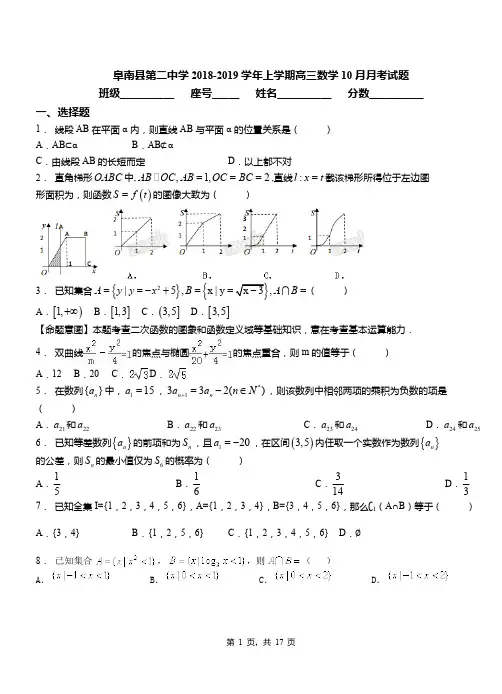 阜南县第二中学 2018-2019 学年上学期高三数学 10 月月考试题
班级__________ 座号_____ 姓名__________ 分数__________
一、选择题
1． 线段 AB 在平面 α 内，则直线 AB 与平面 α 的位置关系是（ ）
A．AB⊂α B．AB⊄α
C．由线段 AB 的长短而定 D．以上都不对
2． 直角梯形 OABC 中, AB∥OC, AB=1, OC=BC=2 .直线 l : x=t 截该梯形所得位于左边图
形面积为，则函数 S=f(t) 的图像大致为（ ）
A. B. C. D.
3． 已知集合 A={y|y=-x²+5}, B={x|y=√x-3}, A∩B=（ ）
A．[1,+∞) B．[1,3] C．(3,5] D．[3,5]
【命题意图】本题考查二次函数的图象和函数定义域等基础知识，意在考查基本运算能力．
4． 双曲线 x²/m - y²/4 =1 的焦点与椭圆 x²/20 + y²/4 =1 的焦点重合，则 m 的值等于（ ）
A．12 B．20 C．2√3 D．2√5
5． 在数列{aₙ}中，a₁=15，3aₙ₊₁=3aₙ-2(n∈N*)，则该数列中相邻两项的乘积为负数的项是
（ ）
A．a₂₁和a₂₂ B．a₂₂和a₂₃ C．a₂₃和a₂₄ D．a₂₄和a₂₅
6． 已知等差数列{aₙ}的前项和为Sₙ，且a₁=-20，在区间(3,5)内任取一个实数作为数列{aₙ}
的公差，则Sₙ的最小值仅为S₆的概率为（ ）
A．1/5 B．1/6 C．3/14 D．1/3
7． 已知全集 I={1，2，3，4，5，6}，A={1，2，3，4}，B={3，4，5，6}，那么∁I（A∩B）等于（ ）
A．{3，4} B．{1，2，5，6} C．{1，2，3，4，5，6} D．∅
8． 已知集合 A={x|x²<1}，B={x|log₃x<1}，则 A∩B=（ ）
A．{x|-1<x<1} B．{x|0<x<1} C．{x|0<x<2} D．{x|-1<x<2}
第 1 页, 共 17 页